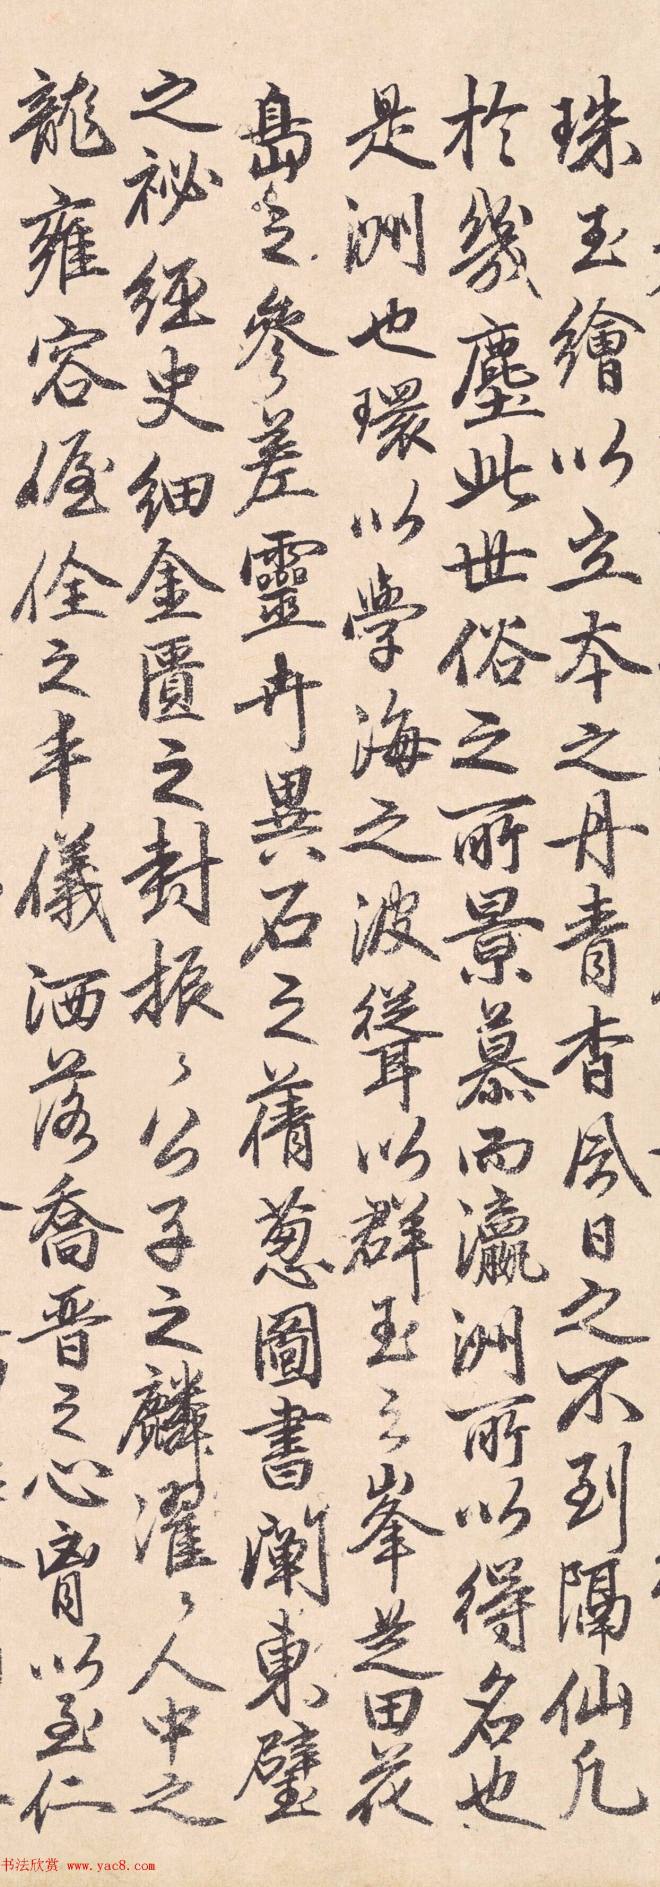 珠玉繪以立本之丹青杳風日之不到隔仙凡
於幾塵此世俗之所景慕而瀛洲所以得名也
是洲也環以學海之波聳以群玉之峯芝田花
島之參差靈卉異石之蒨葱圖書闡東壁
之祕經史紬金匱之封振々公子之麟濯々人中之
龍雍容偓佺之丰儀洒落喬晋之心胷以至仁
书法欣赏 www.yac8.com